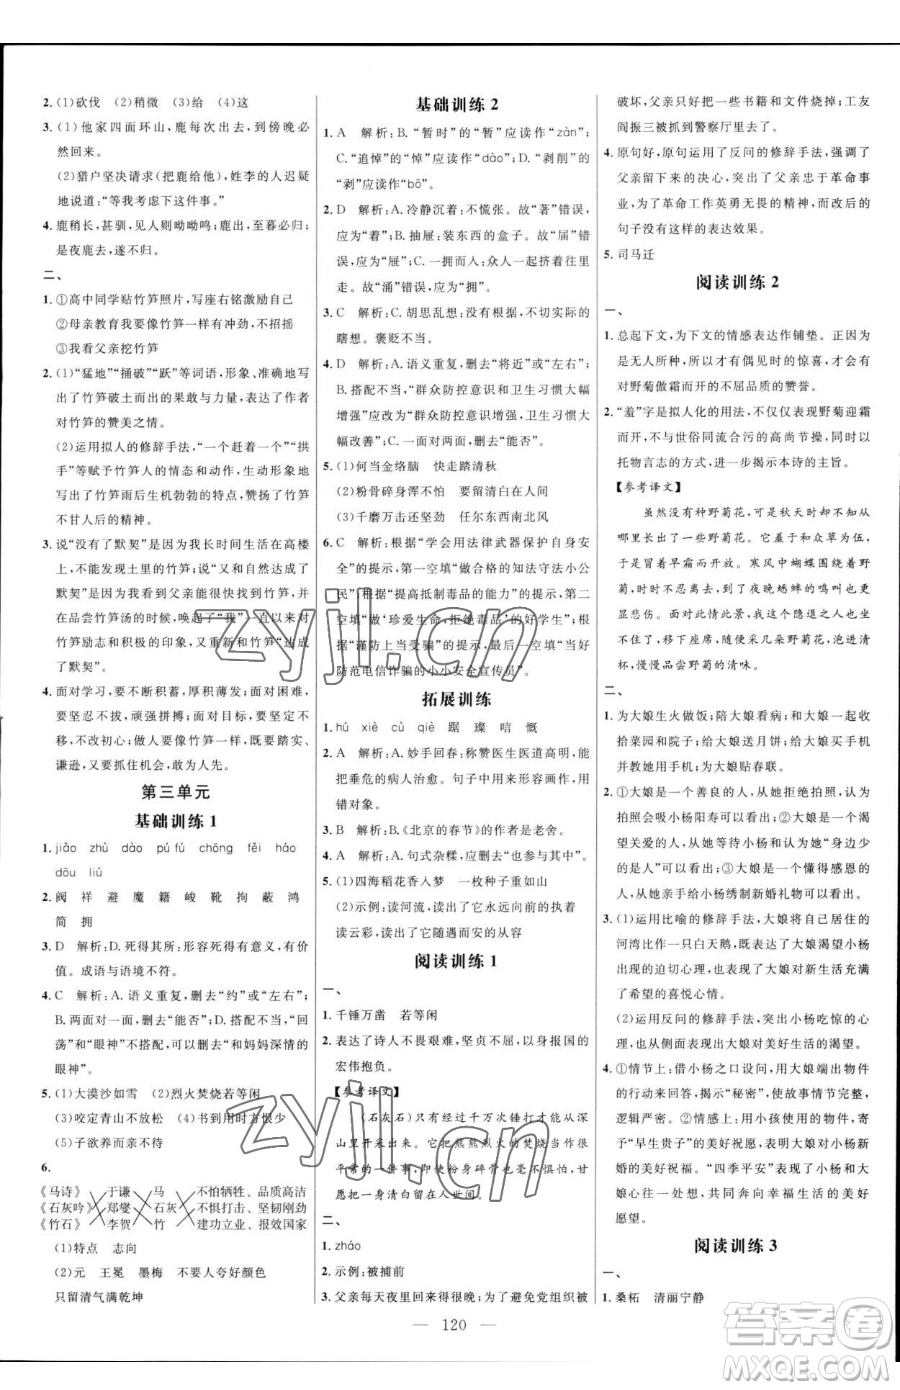 2. (1)砍伐 (2)稍微 (3)给 (4)这
3. (1)他家四面环山,鹿每次出去,到傍晚必
然回来。
(2)猎户坚决请求(把鹿给他),姓李的人迟疑
地说道:“等我考虑下这件事。”
4. 鹿稍长,甚驯,见人则呦呦鸣;鹿出,至暮必归;
是夜鹿去,遂不归。
二、
1. ①高中同学贴竹笋照片,写座右铭激励自己
②母亲教育我要像竹笋一样有冲劲,不招摇
③我看父亲挖竹笋
2. (1)“猛地”“捅破”“跃”等词语,形象、准确地描
写出了竹笋破土而出的果敢与力量,表达了作者
对竹笋的赞美之情。
(2)运用拟人的修辞手法,“一个赶着一个”“拱
手”等赋予竹笋人的情态和动作,生动形象地描
写出了竹笋雨后生机勃勃的特点,赞扬了竹笋
不甘人后的精神。
3. 说“没有了默契”是因为我长时间生活在高楼
上,不能发现土里的竹笋;说“又和自然达成了
默契”是因为我想象到父亲会留些竹笋,并
在品尝竹笋汤的时候,唤起了“我”一直以来对
竹笋励志和积极的印象,又重新和竹笋“达成
了默契”。
4. 面对学习,要不断积蓄,厚积薄发;面对困难,
要坚忍不拔,顽强拼搏;面对国家,要坚定不
移,不改初心;做人要像竹笋一样,既要踏实、
谦逊,又要抓住机会,勇敢向前。
第三单元
基础训练 1
1. jiǎo zhù dào pú fú chōng fěi háo
dōu liǔ
2. 阀 祥 避 魔 籍 峻 靴 拘 蔽 鸿
简 拥
3. D 解析:D. 死得其所:形容死得有意义,有价
值。成语与语境不符。
4. C 解析:A. 语义重复,删去“约”或“左右”;
B. 两面对一面,删去“能否”;D. 搭配不当,“回
荡”和“眼神”不搭配,删去“和妈妈深情的
眼神”。
5. (1)大漠沙如雪 (2)烈火焚烧若等闲
(3)咬定青山不放松 (4)书到用时方恨少
(5)子欲养而亲不待
6.
《马诗》 于谦 马 不怕牺牲、品质高洁
《石灰吟》 郑燮 石灰 不惧打击、坚韧刚劲
《竹石》 李贺 竹 建功立业、报效国家
(1)特点 志向
(2)元 王冕 墨梅 不要人夸好颜色
只留清气满乾坤
基础训练 2
1. A 解析:B.“暂时”的“暂”应读作“zàn”;
C.“追悼”的“悼”应读作“dào”;D.“剥削”的
“剥”应读作“bō”。
2. D 解析:A. 冷静沉着:不慌张。故“著”错误,
应为“着”;B. 抽屉:装东西的盒子。故“届”错
误,应为“屉”;C. 一拥而上:众人一起挤上去。
故“涌”错误,应为“拥”。
3. C 解析:C. 胡思乱想:没有根据,不切实际的
瞎想。褒贬不当。
4. D 解析:A. 语义重复,删去“将近”或“左右”;
B. 搭配不当,“群众防控意识和卫生习惯大大
增强”应为“群众防控意识增强,卫生习惯大大
改善”;C. 一面对两面,删去“能否”。
5. (1)何当金络脑 快走踏清秋
(2)粉骨碎身浑不怕 要留清白在人间
(3)千磨万击还坚劲 任尔东西南北风
6. C 解析:根据“学会用法律武器保护自身安
全”的提示,第一空填“做合格的知法守法小公
民”;根据“提高抵制毒品的能力”的提示,第二
空填“做‘珍爱生命,拒绝毒品’的好学生”;根
据“谨防上当受骗”的提示,最后一空填“当好
防范电信诈骗的小小安全宣传员”。
拓展训练
1. hú xiè cù qiè 踞 璨 唁 慨
2. A 解析:A. 妙手回春:称赞医生医道高明,能
把垂危的病人治愈。句子中用来形容画作,使
用错对象。
3. B 解析:B.《北京的春节》的作者是老舍。
4. A 解析:A. 句式杂糅,应删去“也参与其中”。
5. (1)四海稻花香入梦 一枚种子重如山
(2)示例:读河流,读出了它永不停息的执着
读云彩,读出了它随遇而安的从容
阅读训练 1
一、
1. 千锤万凿 若等闲
2. 表达了诗人不畏艰难,坚贞不屈,以身报国的
宏伟抱负。
【参考译文】
(石灰石)只有经过千万次锤打才能从深
山里开采出来。它把熊熊烈火的焚烧当作很
平常的一件事,即使粉身碎骨也毫不惧怕,甘
愿把一身清白留在人世间。
二、
1. zháo
2. 示例:被捕前
3. 父亲每天夜里回来得很晚;为了避免党组织被
破坏,父亲只好把一些书籍和文件烧掉;工友
阎振三被抓到警察厅里去了。
4. 原句好,原句运用了反问的修辞手法,强调了
父亲留下来的决心,突出了父亲忠于革命事
业,为了革命工作英勇无畏的精神,而改后的
句子没有这样的表达效果。
5. 司马迁
阅读训练 2
一、
1. 总起下文,为下文的情感表达作铺垫。正因为
是无人所种,所以才有偶见时的惊喜,才会有
对野菊傲霜而开的不屈品质的赞誉。
2. “羞”字是拟人化的用法,不仅仅表现野菊迎霜
而开,不与世俗同流合污的高尚节操,同时以
托物言志的方式,进一步揭示本诗的主旨。
【参考译文】
虽然没有种野菊花,可是秋天时却在山
水野地里长出了一些野菊花。它羞于和众草为伍,
于是冒着早霜而开。寒风中蝴蝶围绕着野
菊,时间久了,到了夜晚蟋蟀的鸣叫也更
显悲伤。而我这个喜欢山中景致的隐遁之人也
为此景,移下座席,随意采几朵野菊花,泡进清
杯,慢慢品尝野菊的清味。
二、
1. 为大娘生火做饭;陪大娘看病;和大娘一起收
拾菜园和院子;给大娘送月饼;教大娘开
照片、用手机;为大娘贴春联。
2. ①大娘是一个善良的人,从她拒绝拍照,认为
拍照会吸小杨阳寿可以看出;②大娘是一个
渴望关爱的人,从她等待小杨和认为她“身边少
的是温情”可以看出;③大娘是一个懂得感恩的
人,从她亲手给小杨绣制新婚礼物可以看出。
3. (1)运用比喻的修辞手法,大娘将自己居住的
河湾比作白天鹅,表现了大娘渴望小杨
到来的迫切心理,突出了新生活充满
了希望的喜悦心情。
(2)运用反问的修辞手法,突出小杨吃惊的心理,
也从侧面表现出大娘对美好生活的渴望。
4. ①情节:以小杨之口设疑,用大娘端出物件
的行动来回扣“秘密”,使故事情节完整,
逻辑严密。②情感:大娘使用的物件,
寓于“早生贵子”的美好祝愿,体现了大娘对小杨新
婚的美好祝福。“四季平安”与大娘和小杨对
大娘往一处想,共同奔向幸福生活的美好
愿望。
阅读训练 3
一、
1. 桑柘 清丽宁静
120
zyjl.cn
zyjl.cn
答案圈
MXQE.COM